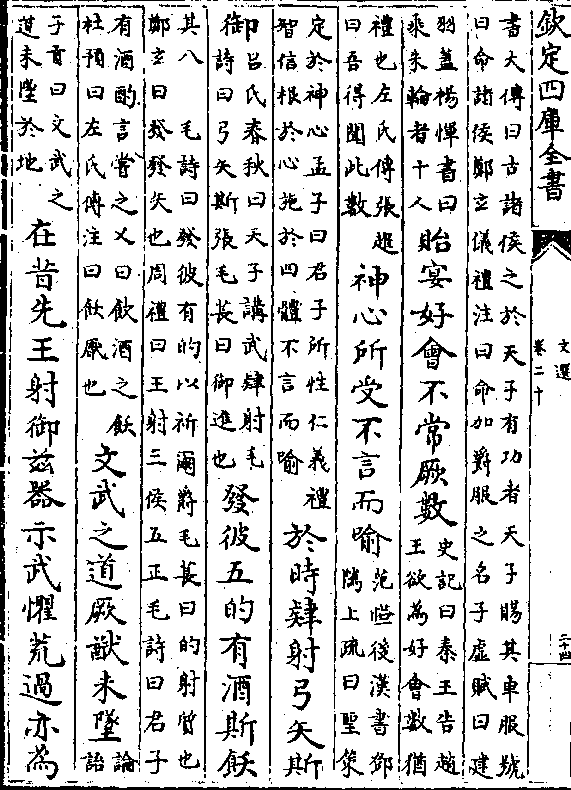 欽定四庫全書
文選
卷二十
二十四
書大傳曰古諸侯之於天子有功者天子賜其車服號
曰命諸侯鄭玄儀禮注曰命加爵服之名子虛賦曰建
羽蓋楊惲書曰
乘朱輪者十人
貽宴好會不常厥數
史記曰秦王告趙
王欲為好會數猶
禮也左氏傳張趯
曰吾得聞此數
神心所受不言而喻
范曄後漢書鄧
隲上疏曰聖策
定於神心孟子曰君子所性仁義禮
智信根於心施於四體不言而喻
於時肄射弓矢斯
御
呂氏春秋曰天子講武肄射毛
詩曰弓矢斯張毛萇曰御進也
發彼五的有酒斯飫
其八
毛詩曰發彼有的以祈爾爵毛萇曰的射質也
鄭玄曰發發矢也周禮曰王射三侯五正毛詩曰君子
有酒酌言嘗之又曰飲酒之飫
杜預曰左氏傳注曰飫厭也
文武之道厥猷未墜
論語
子貢曰文武之
道未墜於地
在昔先王射御茲器示武懼荒過亦為